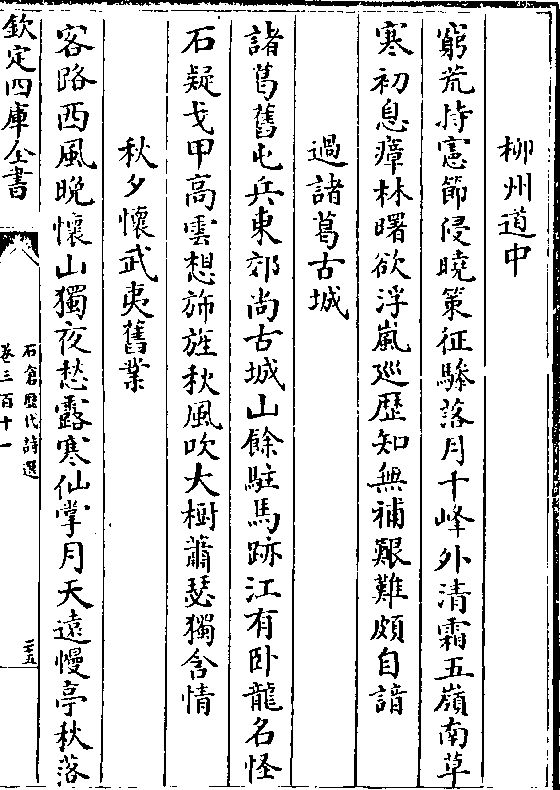 柳州道中
窮荒持憲節侵曉策征驂落月千峰外清霜五嶺南草
寒初息瘴林曙欲浮嵐廵歴知無補艱難頗自諳
過諸葛古城
諸葛舊屯兵東郊尚古城山餘駐馬跡江有卧龍名怪
石疑戈甲高雲想斾旌秋風吹大樹蕭瑟獨含情
秋夕懷武夷舊業
客路西風晚懷山獨夜愁露寒仙掌月天遠慢亭秋落
欽定四庫全書
石倉歴代詩選
卷三百十一
二五